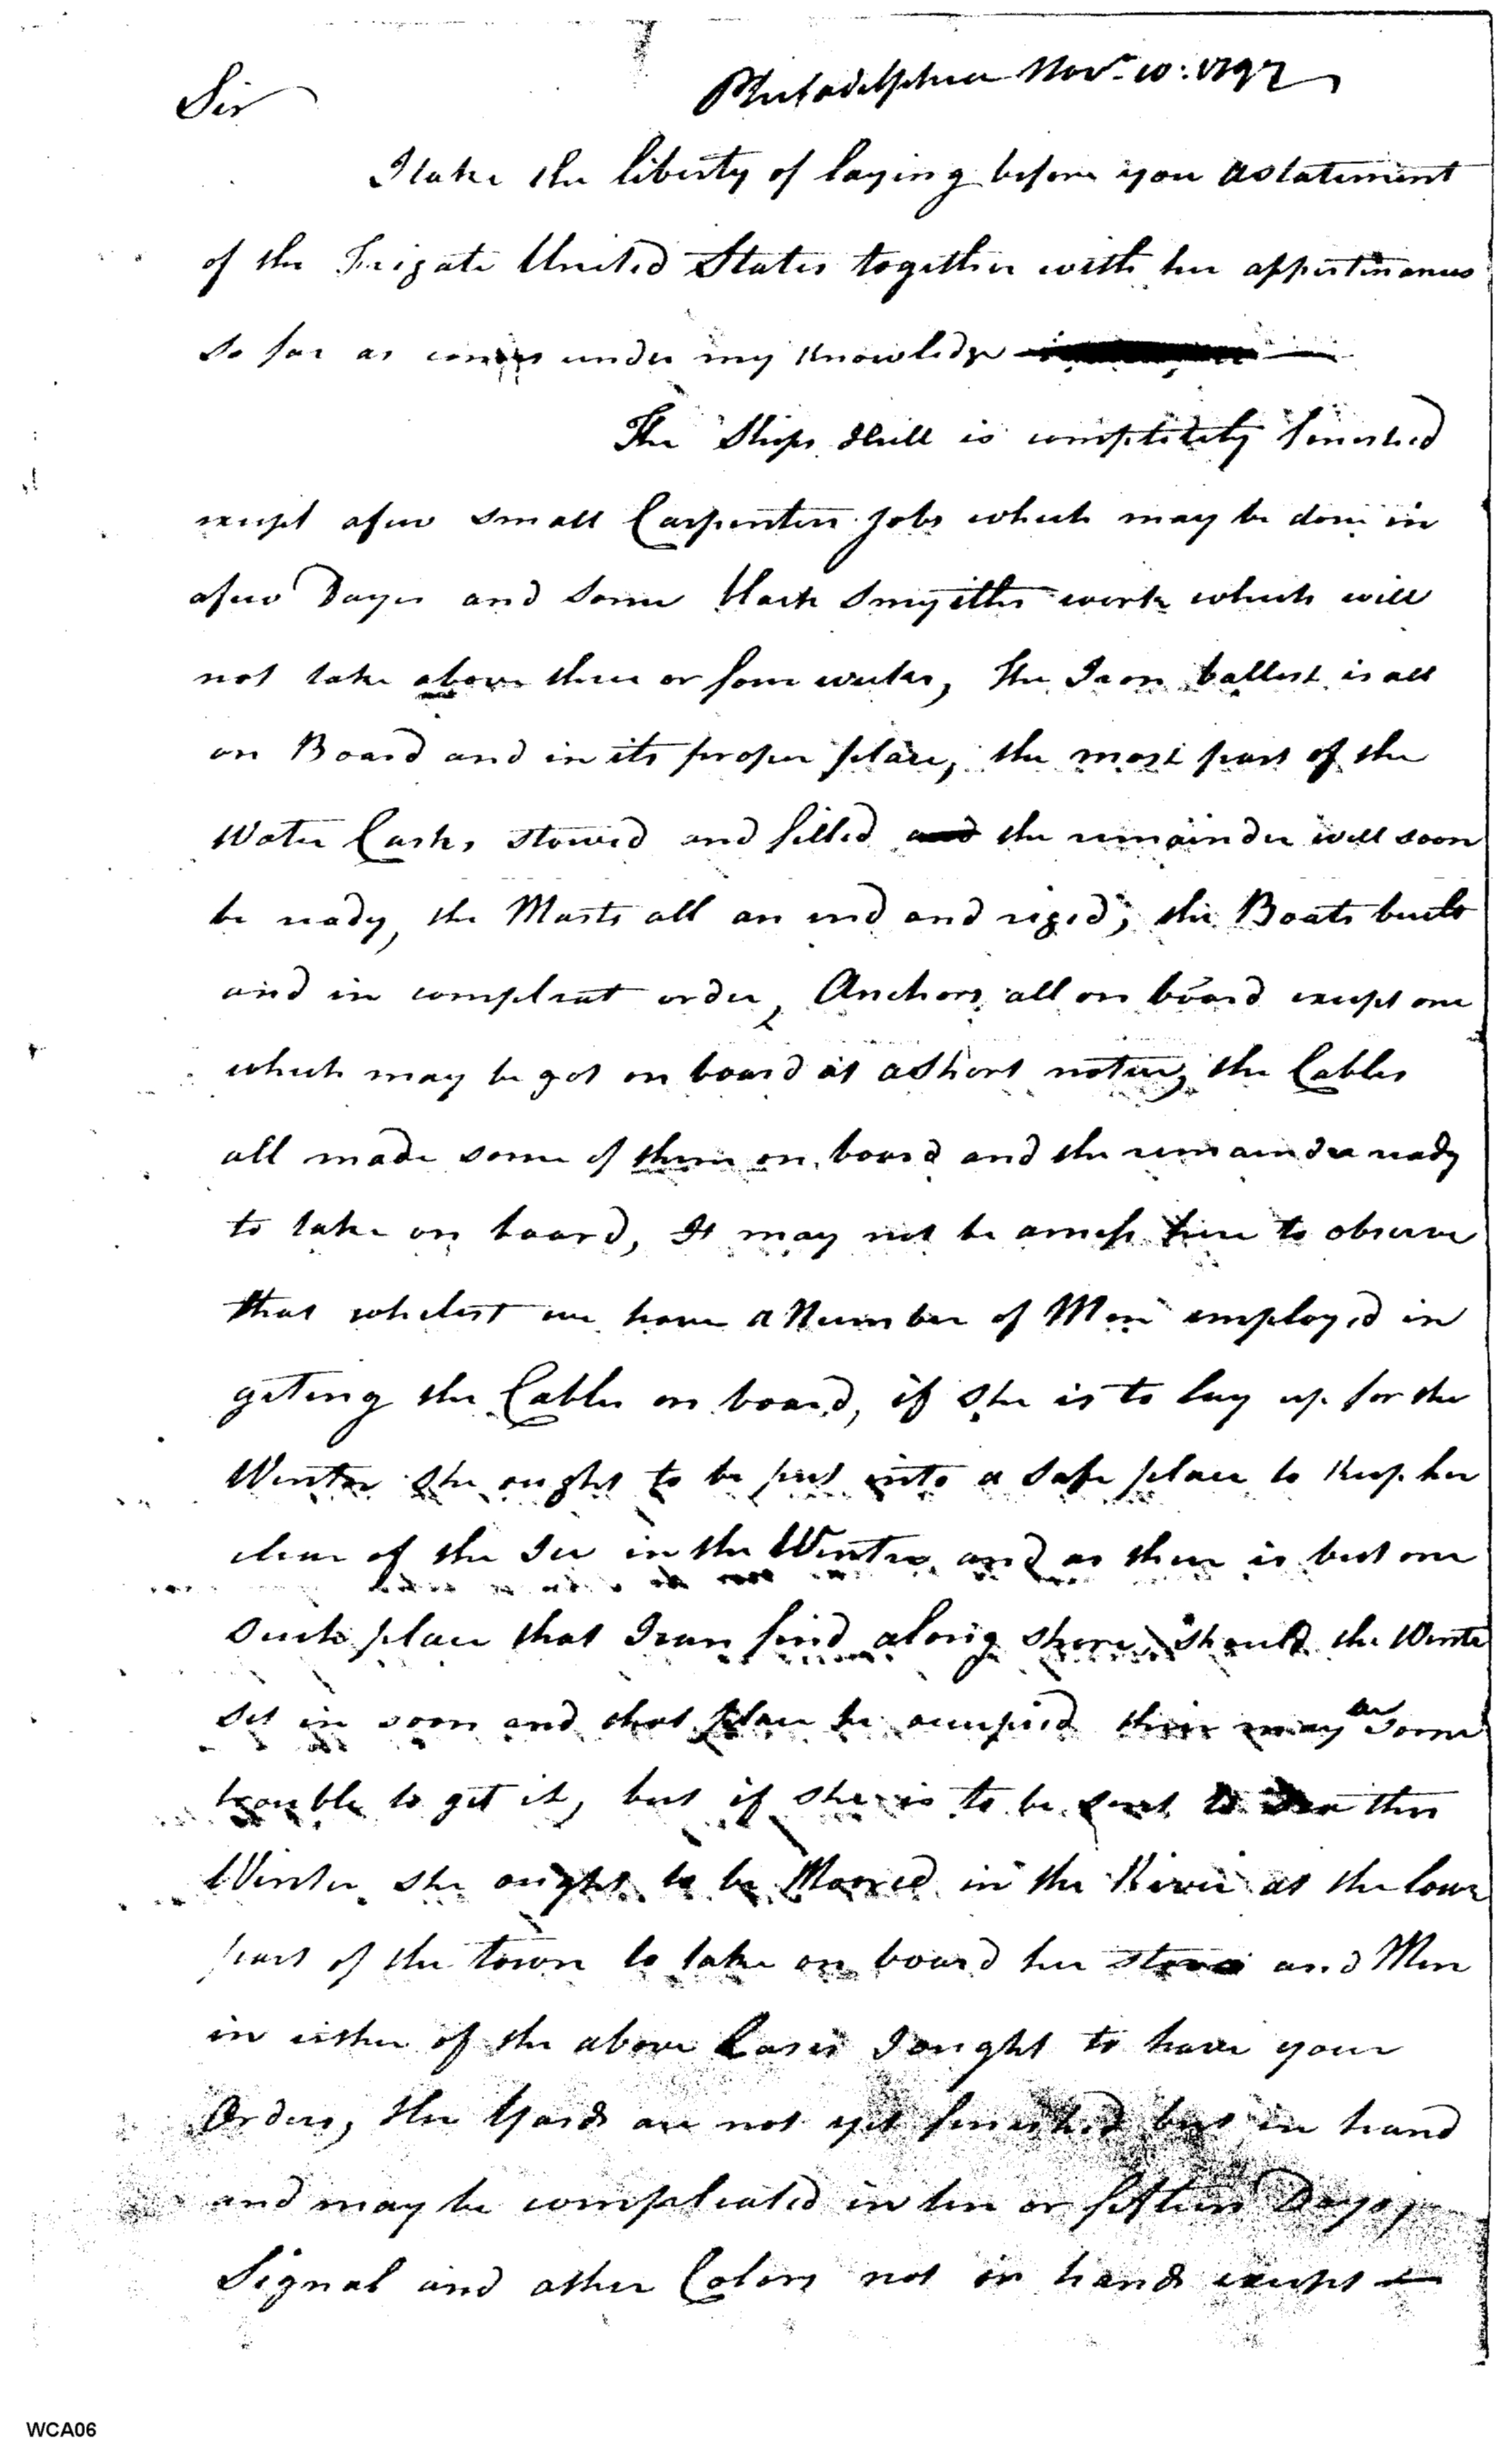 Sir Philadelphia Novr. 10: 1797
I take the liberty of laying before you a statement
of the Frigate United States together with her appertinances
so far as comes under my Knowledge
The Ships Hull is completely finished
except a few small Carpenters Jobs which may be done in
a few Dayes and some black Smyiths work which will
not take above three or four weeks, The Iron ballest is all
on Board and in its proper place, the most part of the
Water Casks, stowed and filled and the remainder will soon
be ready, the Masts all an end and riged; the Boats built
and in compleat order, Anchors all on board except one
which may be got on board at a short notice, the Cables
all made some of them on board and the remainder ready
to take on board, It may not be amess here to observe
that whilest we have a Number of Men employed in
geting the Cables on board, if She is to lay up for the
Winter she ought to be put into a safe place to Keep her
clear of the Ice in the Winter and as there is but one
such place that I can find along shore, should the Winter
set in soon and that place be occupied their may be some
trouble to get it, but if she is to be sent to Sea this
Winter she ought to be Moored in the River at the lower
part of the town to take on board her stores and Men
in either of the above Cases I ought to have your
Orders, the Yards are not yet finished but in hand
and may be compleated in ten or fifteen Days,
Signal and other Colors not in hand except
WCA06